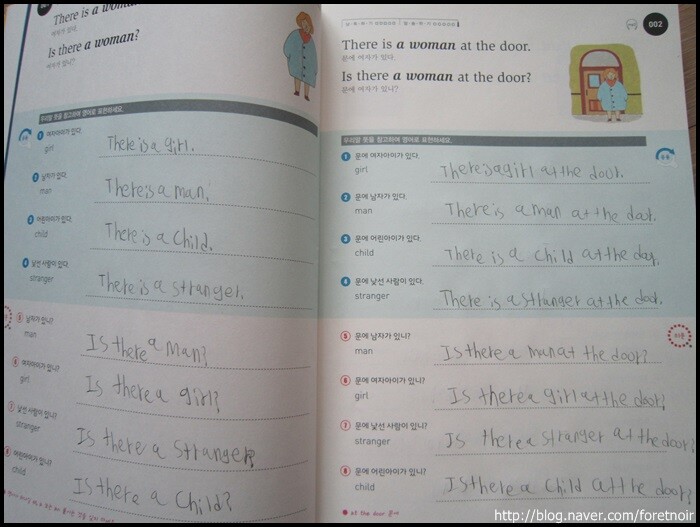 There is a woman.
여자가 있다.
Is there a woman?
여자가 있니?
우리말 뜻을 참고하여 영어로 표현하세요.
1 여자아이가 있다.
girl
There is a girl.
2 남자가 있다.
man
There is a man.
3 어린아이가 있다.
child
There is a child.
4 낯선 사람이 있다.
stranger
There is a stranger.
5 남자가 있니?
man
Is there a man?
6 여자아이가 있니?
girl
Is there a girl?
7 낯선 사람이 있니?
stranger
Is there a stranger?
8 어린아이가 있니?
child
Is there a child?
002
There is a woman at the door.
문에 여자가 있다.
Is there a woman at the door?
문에 여자가 있니?
우리말 뜻을 참고하여 영어로 표현하세요.
1 문에 여자아이가 있다.
girl
There is a girl at the door.
2 문에 남자가 있다.
man
There is a man at the door.
3 문에 어린아이가 있다.
child
There is a child at the door.
4 문에 낯선 사람이 있다.
stranger
There is a stranger at the door.
5 문에 남자가 있니?
man
Is there a man at the door?
6 문에 여자아이가 있니?
girl
Is there a girl at the door?
7 문에 낯선 사람이 있니?
stranger
Is there a stranger at the door?
8 문에 어린아이가 있니?
child
Is there a child at the door?
at the door 문에
http://blog.naver.com/foretnoir